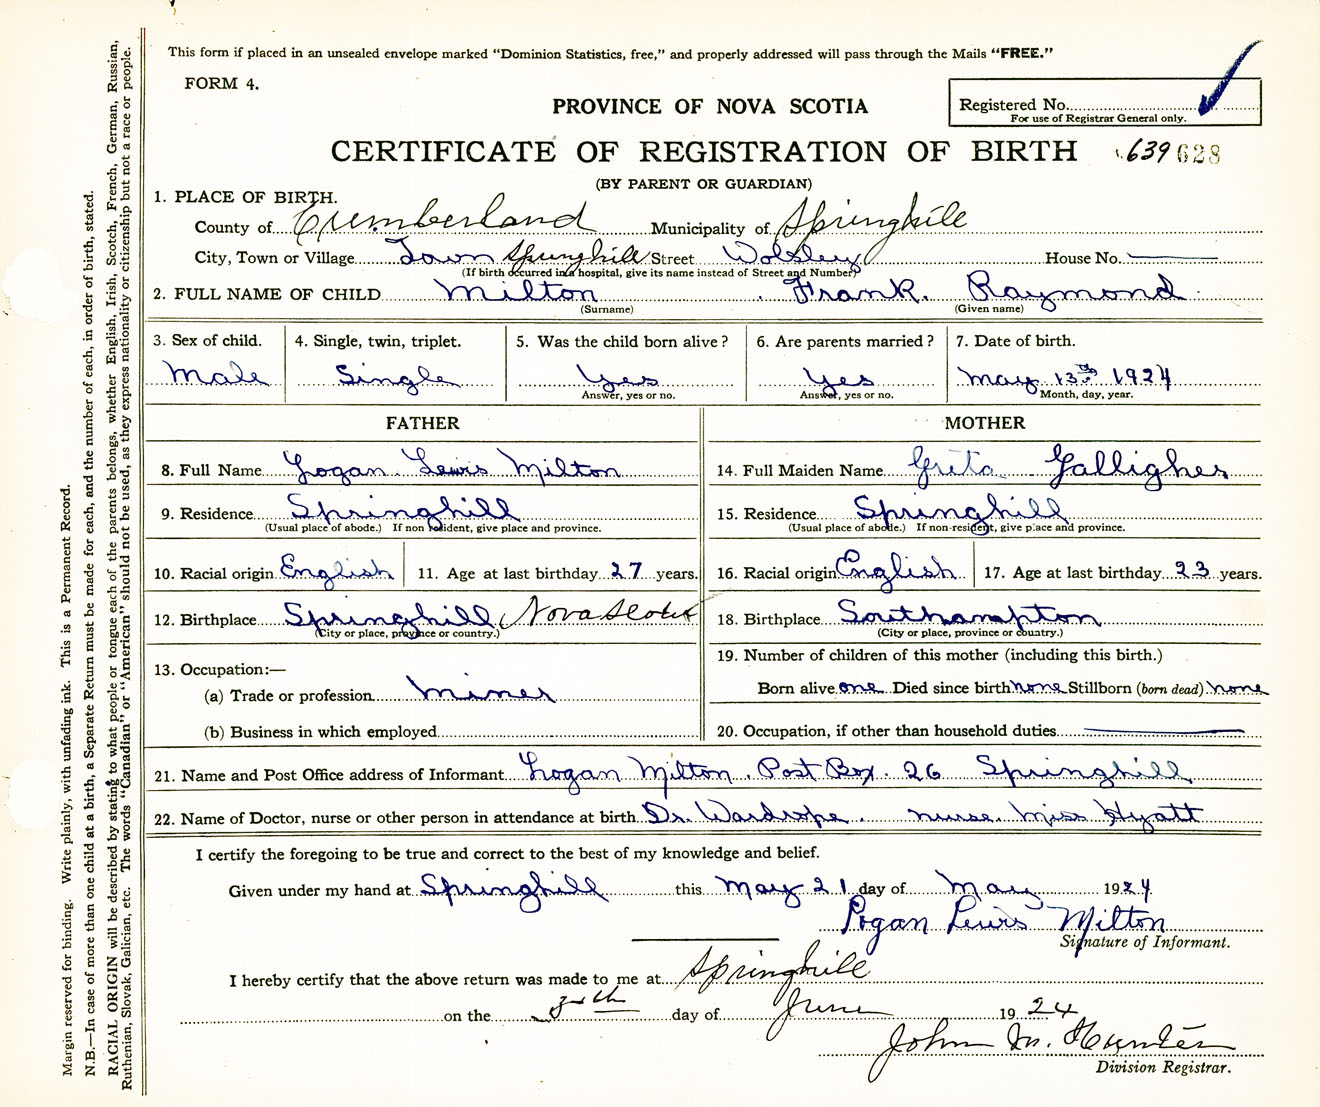 This form if placed in an unsealed envelope marked "Dominion Statistics, free," and properly addressed will pass through the Mails "FREE."
FORM 4.
PROVINCE OF NOVA SCOTIA
Registered No.
For use of Registrar General only.
CERTIFICATE OF REGISTRATION OF BIRTH 639 628
(BY PARENT OR GUARDIAN)
1. PLACE OF BIRTH.
County of Cumberland Municipality of Springhill
City, Town or Village Town Springhill Street Wolsley House No.
(If birth occurred in a hospital, give its name instead of Street and Number)
2. FULL NAME OF CHILD Milton Frank Raymond
(Surname) (Given name)
3. Sex of child. 4. Single, twin, triplet. 5. Was the child born alive? 6. Are parents married? 7. Date of birth.
Male Single Yes Yes May 13th 1924
Answer, yes or no. Answer, yes or no. Month, day, year.
FATHER MOTHER
8. Full Name Logan Lewis Milton 14. Full Maiden Name Greta Galligher
9. Residence Springhill 15. Residence Springhill
(Usual place of abode.) If non resident, give place and province. (Usual place of abode.) If non-resident, give place and province.
10. Racial origin English 11. Age at last birthday 27 years. 16. Racial origin English 17. Age at last birthday 23 years.
12. Birthplace Springhill Nova Scotia 18. Birthplace Southampton
(City or place, province or country.) (City or place, province or country.)
19. Number of children of this mother (including this birth.)
13. Occupation:—
(a) Trade or profession Miner Born alive one Died since birth none Stillborn (born dead) none
(b) Business in which employed 20. Occupation, if other than household duties
21. Name and Post Office address of Informant Logan Milton. Post Box. 26 Springhill
22. Name of Doctor, nurse or other person in attendance at birth Dr. Wardrope. nurse. Miss Hyatt
I certify the foregoing to be true and correct to the best of my knowledge and belief.
Given under my hand at Springhill this May 21 day of May 1924
Logan Lewis Milton
Signature of Informant.
I hereby certify that the above return was made to me at Springhill
on the day of June 1924
John M. Hunter
Division Registrar.
Margin reserved for binding. Write plainly, with unfading ink. This is a Permanent Record.
N.B.—In case of more than one child at a birth, a Separate Return must be made for each, and the number of each, in order of birth, stated.
RACIAL ORIGIN will be described by stating to what people or tongue each of the parents belongs, whether English, Irish, Scotch, French, German, Russian,
Ruthenian, Slovak, Galician, etc. The words "Canadian" or "American" should not be used, as they express nationality or citizenship but not a race or people.